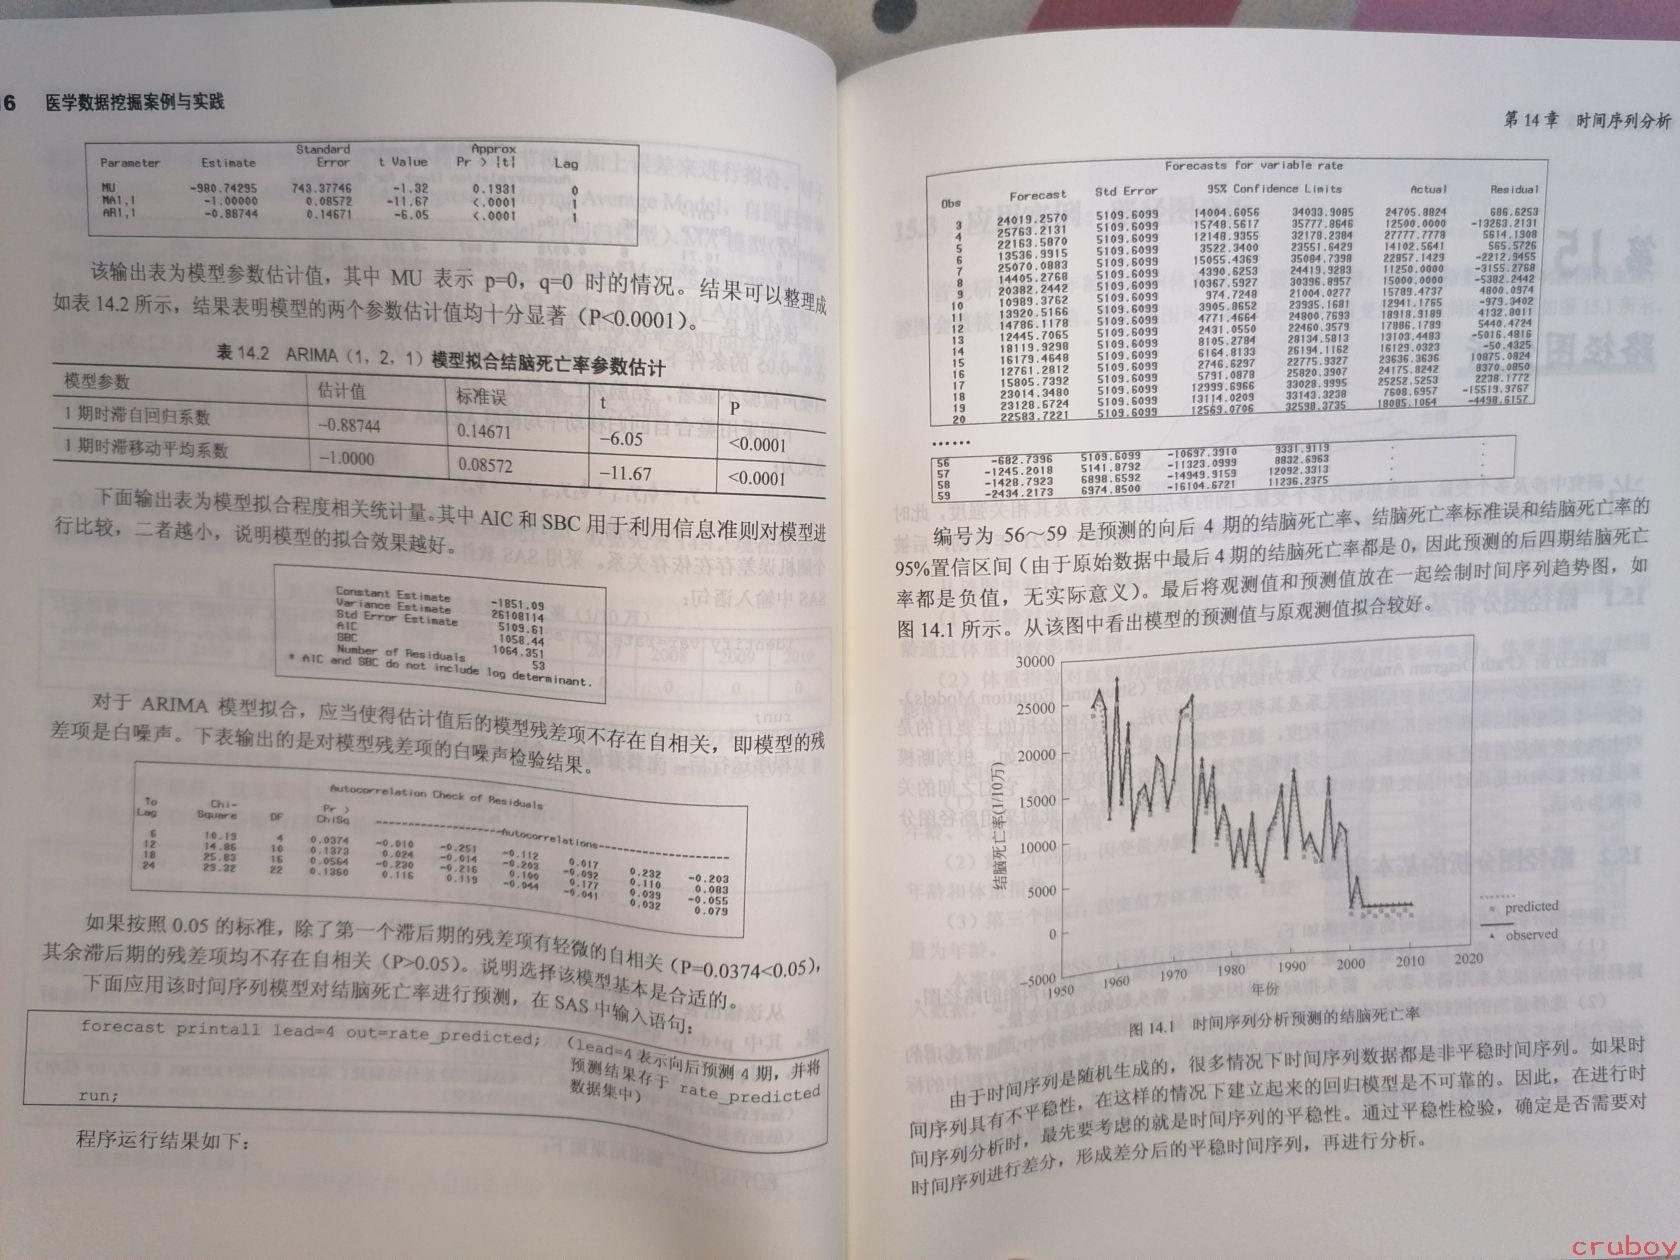 16 医学数据挖掘案例与实践
Parameter Estimate Standard Error t Value Approx Pr > |t| Lag
MU -980.74295 743.37746 -1.32 0.1931 0
MA1,1 -1.00000 0.08572 -11.67 <.0001 1
AR1,1 -0.88744 0.14671 -6.05 <.0001 1
该输出表为模型参数估计值，其中 MU 表示 p=0，q=0 时的情况。结果可以整理成
如表 14.2 所示，结果表明模型的两个参数估计值均十分显著（P<0.0001）。
表 14.2 ARIMA（1，2，1）模型拟合结脑死亡率参数估计
模型参数 估计值 标准误 t P
1 期时滞自回归系数 –0.88744 0.14671 –6.05 <0.0001
1 期时滞移动平均系数 –1.0000 0.08572 –11.67 <0.0001
下面输出表为模型拟合程度相关统计量。其中 AIC 和 SBC 用于利用信息准则对模型进
行比较，二者越小，说明模型的拟合效果越好。
Constant Estimate -1851.09
Variance Estimate 26108114
Std Error Estimate 5109.61
AIC 1058.44
SBC 1064.351
Number of Residuals 53
* AIC and SBC do not include log determinant.
对于 ARIMA 模型拟合，应当使得估计值后的模型残差项不存在自相关，即模型的残
差项是白噪声。下表输出的是对模型残差项的白噪声检验结果。
Autocorrelation Check of Residuals
To Lag Chi-Square DF Pr > ChiSq Autocorrelations
6 10.19 4 0.0374 -0.010 -0.251 -0.112 0.017 0.232 -0.203
12 14.86 10 0.1373 0.024 -0.014 -0.203 -0.092 0.110 0.083
18 25.83 16 0.0564 -0.230 -0.216 0.100 0.177 0.039 -0.055
24 29.32 22 0.1360 0.116 0.119 -0.044 -0.041 0.032 0.079
如果按照 0.05 的标准，除了第一个滞后期的残差项有轻微的自相关（P=0.0374<0.05），
其余滞后期的残差项均不存在自相关（P>0.05）。说明选择该模型基本是合适的。
下面应用该时间序列模型对结脑死亡率进行预测，在 SAS 中输入语句：
forecast printall lead=4 out=rate_predicted; （lead=4 表示向后预测 4 期，并将
预测结果存于 rate_predicted
数据集中）
run;
程序运行结果如下：
第 14 章 时间序列分析
Forecasts for variable rate
Obs Forecast Std Error 95% Confidence Limits Actual Residual
3 24019.2570 5109.6099 14004.6056 34033.9085 24705.8824 686.6253
4 25763.2131 5109.6099 15748.5617 35777.8646 12500.0000 -13263.2131
5 22163.5870 5109.6099 12148.9355 32178.2384 27777.7778 5614.1908
6 13536.9915 5109.6099 3522.3400 23551.6429 14102.5641 565.5726
7 25070.0883 5109.6099 15055.4369 35084.7398 22857.1429 -2212.9455
8 14405.2768 5109.6099 4390.6253 24419.9283 11250.0000 -3155.2768
9 20382.2442 5109.6099 10367.5927 30396.8957 15000.0000 -5382.2442
10 10989.3762 5109.6099 974.7248 21004.0277 15789.4737 4800.0974
11 13920.5166 5109.6099 3905.8652 23935.1681 12941.1765 -979.3402
12 14786.1178 5109.6099 4771.4664 24800.7693 18918.9189 4132.8011
13 12445.7065 5109.6099 2431.0550 22460.3579 17886.1789 5440.4724
14 18119.9298 5109.6099 8105.2784 28134.5813 13103.4483 -5016.4816
15 16179.4648 5109.6099 6164.8133 26194.1162 16129.0323 -50.4325
16 12761.2812 5109.6099 2746.6297 22775.9327 23636.3636 10875.0824
17 15805.7392 5109.6099 5791.0878 25820.3907 24175.8242 8370.0850
18 23014.3480 5109.6099 12999.6966 33028.9995 25252.5253 2238.1772
19 23128.6724 5109.6099 13114.0209 33143.3238 7608.6957 -15519.9767
20 22583.7221 5109.6099 12569.0706 32598.3735 18085.1064 -4498.6157
……
56 -682.7396 5109.6099 -10697.3910 9331.9119 . .
57 -1245.2018 5141.8792 -11323.0999 8832.6963 . .
58 -1428.7923 6898.6592 -14949.9159 12092.3313 . .
59 -2434.2173 6974.8500 -16104.6721 11236.2375 . .
编号为 56～59 是预测的向后 4 期的结脑死亡率、结脑死亡率标准误和结脑死亡率的
95%置信区间（由于原始数据中最后 4 期的结脑死亡率都是 0，因此预测的后四期结脑死亡
率都是负值，无实际意义）。最后将观测值和预测值放在一起绘制时间序列趋势图，如
图 14.1 所示。从该图中看出模型的预测值与原观测值拟合较好。
结脑死亡率(1/10万)
30000
25000
20000
15000
10000
5000
0
–5000
1950 1960 1970 1980 1990 2000 2010 2020
年份
predicted
observed
图 14.1 时间序列分析预测的结脑死亡率
由于时间序列是随机生成的，很多情况下时间序列数据都是非平稳时间序列。如果时
间序列具有不平稳性，在这样的情况下建立起来的回归模型是不可靠的。因此，在进行时
间序列分析时，最先要考虑的就是时间序列的平稳性。通过平稳性检验，确定是否需要对
时间序列进行差分，形成差分后的平稳时间序列，再进行分析。
cruboy